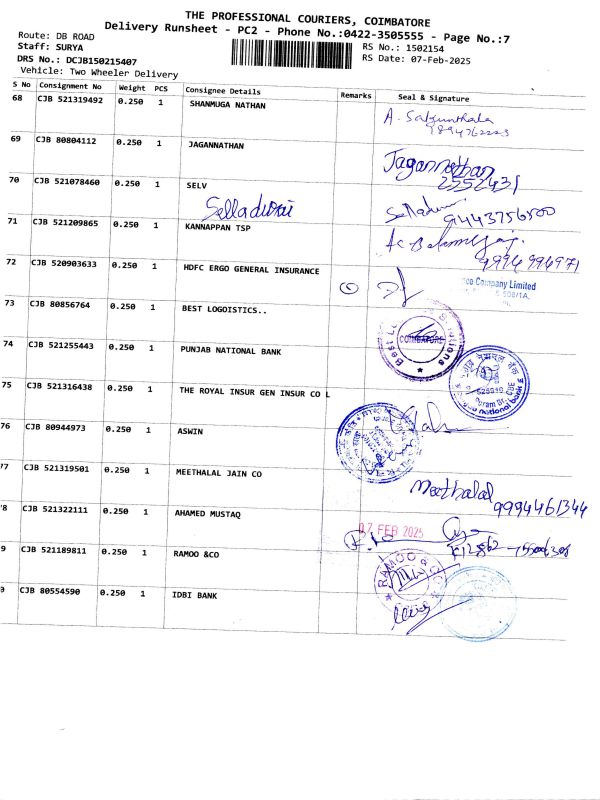 THE PROFESSIONAL COURIERS, COIMBATORE
Delivery Runsheet - PC2 - Phone No.:0422-3505555 - Page No.:7
Route: DB ROAD
Staff: SURYA
RS No.: 1502154
DRS No.: DCJB150215407
RS Date: 07-Feb-2025
Vehicle: Two Wheeler Delivery
S No Consignment No Weight PCS Consignee Details Remarks Seal & Signature
68 CJB 521319492 0.250 1 SHANMUGA NATHAN
69 CJB 80804112 0.250 1 JAGANNATHAN
Jagannathan
2552431
70 CJB 521078460 0.250 1 SELV
Selladurai
71 CJB 521209865 0.250 1 KANNAPPAN TSP
9994994971
72 CJB 520903633 0.250 1 HDFC ERGO GENERAL INSURANCE
Company Limited
73 CJB 80856764 0.250 1 BEST LOGOISTICS..
COIMBATORE
74 CJB 521255443 0.250 1 PUNJAB NATIONAL BANK
national bank
75 CJB 521316438 0.250 1 THE ROYAL INSUR GEN INSUR CO L
76 CJB 80944973 0.250 1 ASWIN
77 CJB 521319501 0.250 1 MEETHALAL JAIN CO
Meethalal
9994461344
78 CJB 521322111 0.250 1 AHAMED MUSTAQ
07 FEB 2025
9 CJB 521189811 0.250 1 RAMOO &CO
RAMOO & CO
0 CJB 80554590 0.250 1 IDBI BANK